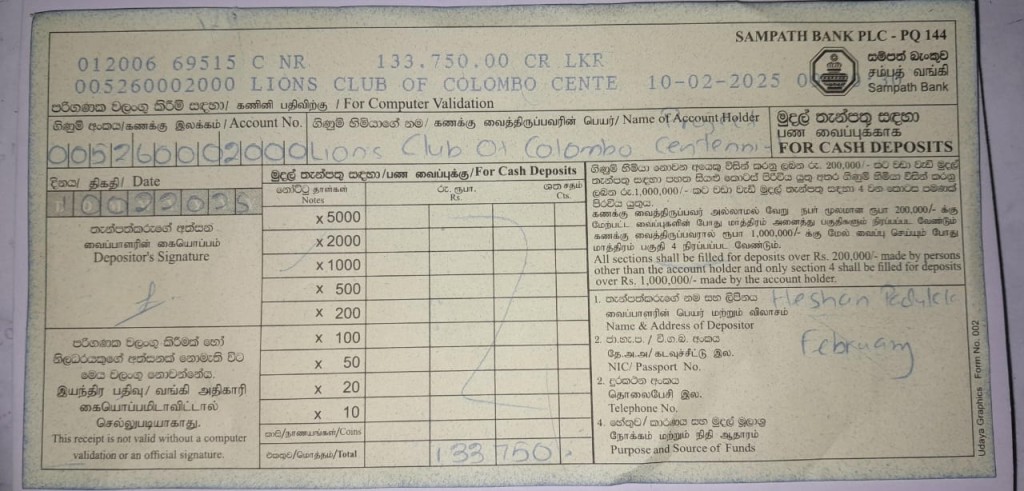 SAMPATH BANK PLC - PQ 144
සම්පත් බැංකුව
சம்பத் வங்கி
Sampath Bank
012006 69515 C NR 133.750.00 CR LKR
005260002000 LIONS CLUB OF COLOMBO CENTE 10-02-2025
පරිගණක වලංගු කිරීම් සඳහා/ கணினி பதிவிற்கு / For Computer Validation
ගිණුම් අංකය/கணக்கு இலக்கம்/Account No.
ගිණුම් හිමියාගේ නම/ கணக்கு வைத்திருப்பவரின் பெயர்/ Name of Account Holder
005260002000
Lions Club Of Colombo Centenni
මුදල් තැන්පතු සඳහා
பண வைப்புக்காக
FOR CASH DEPOSITS
දිනය/ திகதி/ Date
10022025
තැන්පත්කරුගේ අත්සන
வைப்பாளரின் கையொப்பம்
Depositor's Signature
පරිගණක වලංගු කිරීමක් හෝ
නිලධරයකුගේ අත්සනක් නොමැති විට
මෙය වලංගු නොවන්නේය.
இயந்திர பதிவு/ வங்கி அதிகாரி
கையொப்பமிடாவிட்டால்
செல்லுபடியாகாது.
This receipt is not valid without a computer
validation or an official signature.
මුදල් තැන්පතු සඳහා/பண வைப்புக்கு/For Cash Deposits
නෝට්ටු தாள்கள்
Notes
රු. ரூபா.
Rs.
ශත சதம்
Cts.
x 5000
x 2000
x 1000
x 500
x 200
x 100
x 50
x 20
x 10
කාසි/நாணயங்கள்/Coins
එකතුව/மொத்தம்/Total
133750
ගිණුම් හිමියා නොවන අයෙකු විසින් කරනු ලබන රු. 200,000/- කට වඩා වැඩි මුදල්
තැන්පතු සඳහා පහත සියළු කොටස් පිරවිය යුතු අතර ගිණුම් හිමියා විසින් කරනු
ලබන රු.1,000,000/- කට වඩා වැඩි මුදල් තැන්පතු සඳහා 4 වන කොටස පමණක්
පිරවිය යුතුය.
கணக்கு வைத்திருப்பவர் அல்லாமல் வேறு நபர் மூலமான ரூபா 200,000/- க்கு
மேற்பட்ட வைப்புகளின் போது மாத்திரம் அனைத்து பகுதிகளும் நிரப்பப்பட வேண்டும்
கணக்கு வைத்திருப்பவரால் ரூபா 1,000,000/- க்கு மேல் வைப்பு செய்யும் போது
மாத்திரம் பகுதி 4 நிரப்பப்பட வேண்டும்.
All sections shall be filled for deposits over Rs. 200,000/- made by persons
other than the account holder and only section 4 shall be filled for deposits
over Rs. 1,000,000/- made by the account holder.
1. තැන්පත්කරුගේ නම සහ ලිපිනය Heshan
வைப்பாளரின் பெயர் மற்றும் விலாசம்
Name & Address of Depositor
2. ජා.හැ.ප. / වි.ග.බ. අංකය February
தே.அ.அ/ கடவுச்சீட்டு இல.
NIC/ Passport No.
2. දුරකථන අංකය
தொலைபேசி இல.
Telephone No.
4. හේතුව/ කාරණය සහ මුදල් මූලාශ්‍ර
நோக்கம் மற்றும் நிதி ஆதாரம்
Purpose and Source of Funds
Udaya Graphics Form No. 002